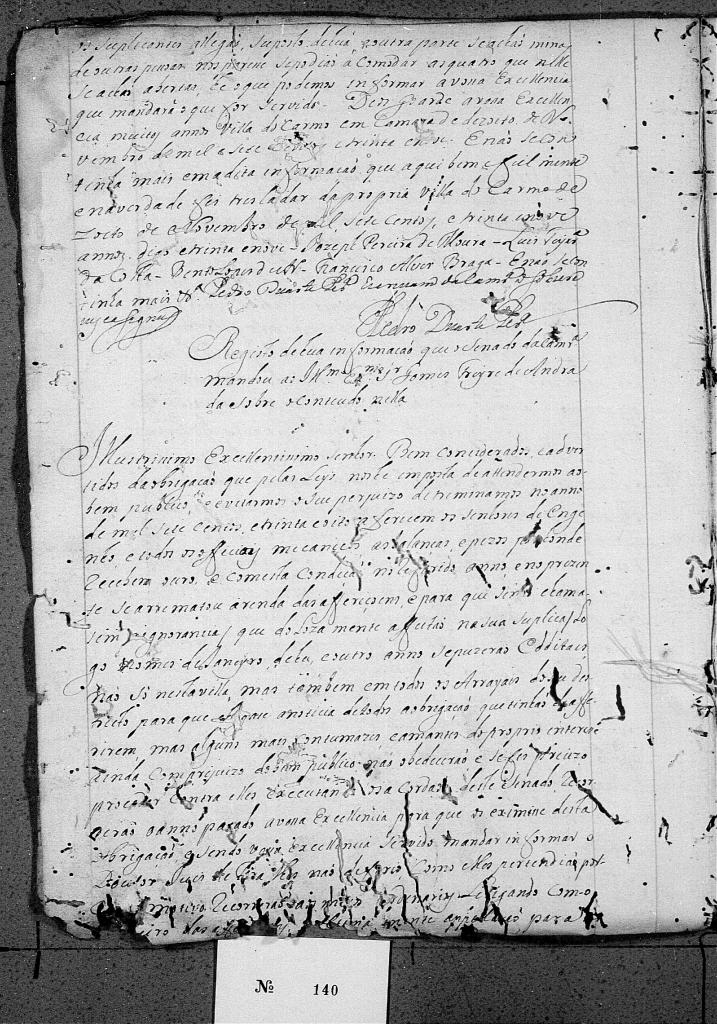 os Suplicantes allegaõ, Suposto de hua, e outra parte Se achaõ minas
de outras pessoas nos parece Se podiaõ acomodar as quatro que nelle
Se achaõ abertas, he o que podemos informar a vossa Excellencia
que mandará o que for Servido. Deos Guarde a vossa Excellen
cia muitos annos Villa do Carmo em Camara de dezoito de No
vembro de mil e Sete Centos e trinta e nove. E naõ Se con
tinha mais em a dita informaçaõ que aqui bem e fiel mente
e na verda de fes tresladar da propria Villa do Carmo de
zoito de Novembro de mil Sete Centos, e trinta e nove
annos digo e trinta e nove - Jozeph Pereira de Moura - Luis
da Costa - Bento - Francisco Alvez Braga - E naõ Se con
tinha mais Pedro Duarte Escrivam da Camara o Sobscrevi
e asigney
Pedro Duarte Pra
Registo de hua informaçaõ que o Senado da Camra
mandou ao Illmo Exmo Sr Gomes Freyre de Andra
da Sobre o Conteudo nella
Illustrissimo Excellentissimo Senhor. Bem Considerados, e adver
tidos da obrigaçaõ que pelas Leys nos he imposta de attendermos ao
bem publico, e evitarmos o Seu perjuizo detriminamos no anno
de mil Sete Centos, e trinta e oito aferecem os Senhores de Enge
nho, e todos os officiais mecanicos as balanças, e pezos por onde
recebem ouro, e Com esta Condiçaõ no referido anno e no prezen
te Se arrematou a renda das afericoens, e para que Senaõ chama
sem ignorancia, que doloza mente affectaõ na Sua Suplica, Lo
go no mes de Janeyro, de hu, e outro anno Se puzeraõ Edditaes
naõ Só nesta villa, mas tambem em todos os Arrayais do Seu des
tricto para que chegase a noticia de todos a obrigaçaõ que tinhaõ de affe
rirem, mas alguns mais Contumazes e amantes do proprio interece
ainda Com prejuizo do bem publico naõ obedeceraõ e Se fes precizo
proceder Contra elles executando os acordaõs deste Senado, recor
reraõ o anno pasado a vossa Excellencia para que os eximise desta
obrigaçaõ, e Sendo vossa Excellencia Servido mandar informar o
Doutor Juis de fora lhes naõ deferio Como elles pertendiaõ, por
motivo recorreraõ aos meios ordinarios
mente appelaraõ para
Nº 140